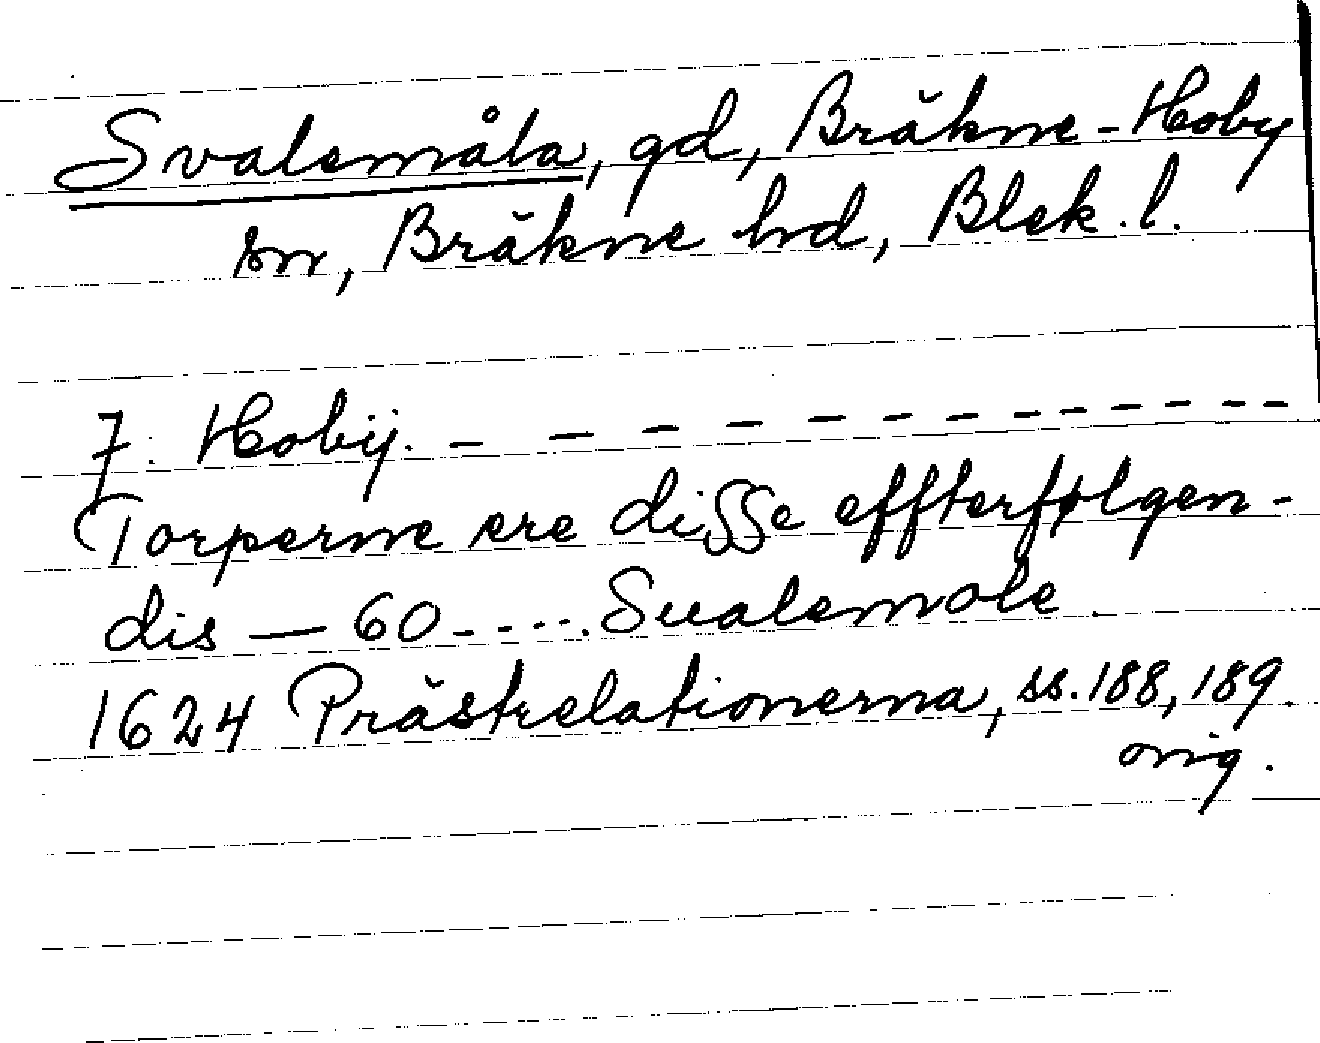 Svalemåla, gd, Bräkne-Hoby
sn, Bräkne hd, Blek. l.
7. Hobÿ. - - - - - - - - - - - - -
Torperne ere disse effterfølgen-
dis — 60 - - - - . Sualemole.
1624 Prästrelationerna, ss. 188, 189.
orig.